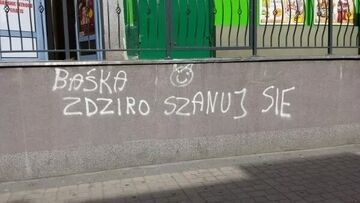 BAŚKA
ZDZIRO SZANUJ SIE